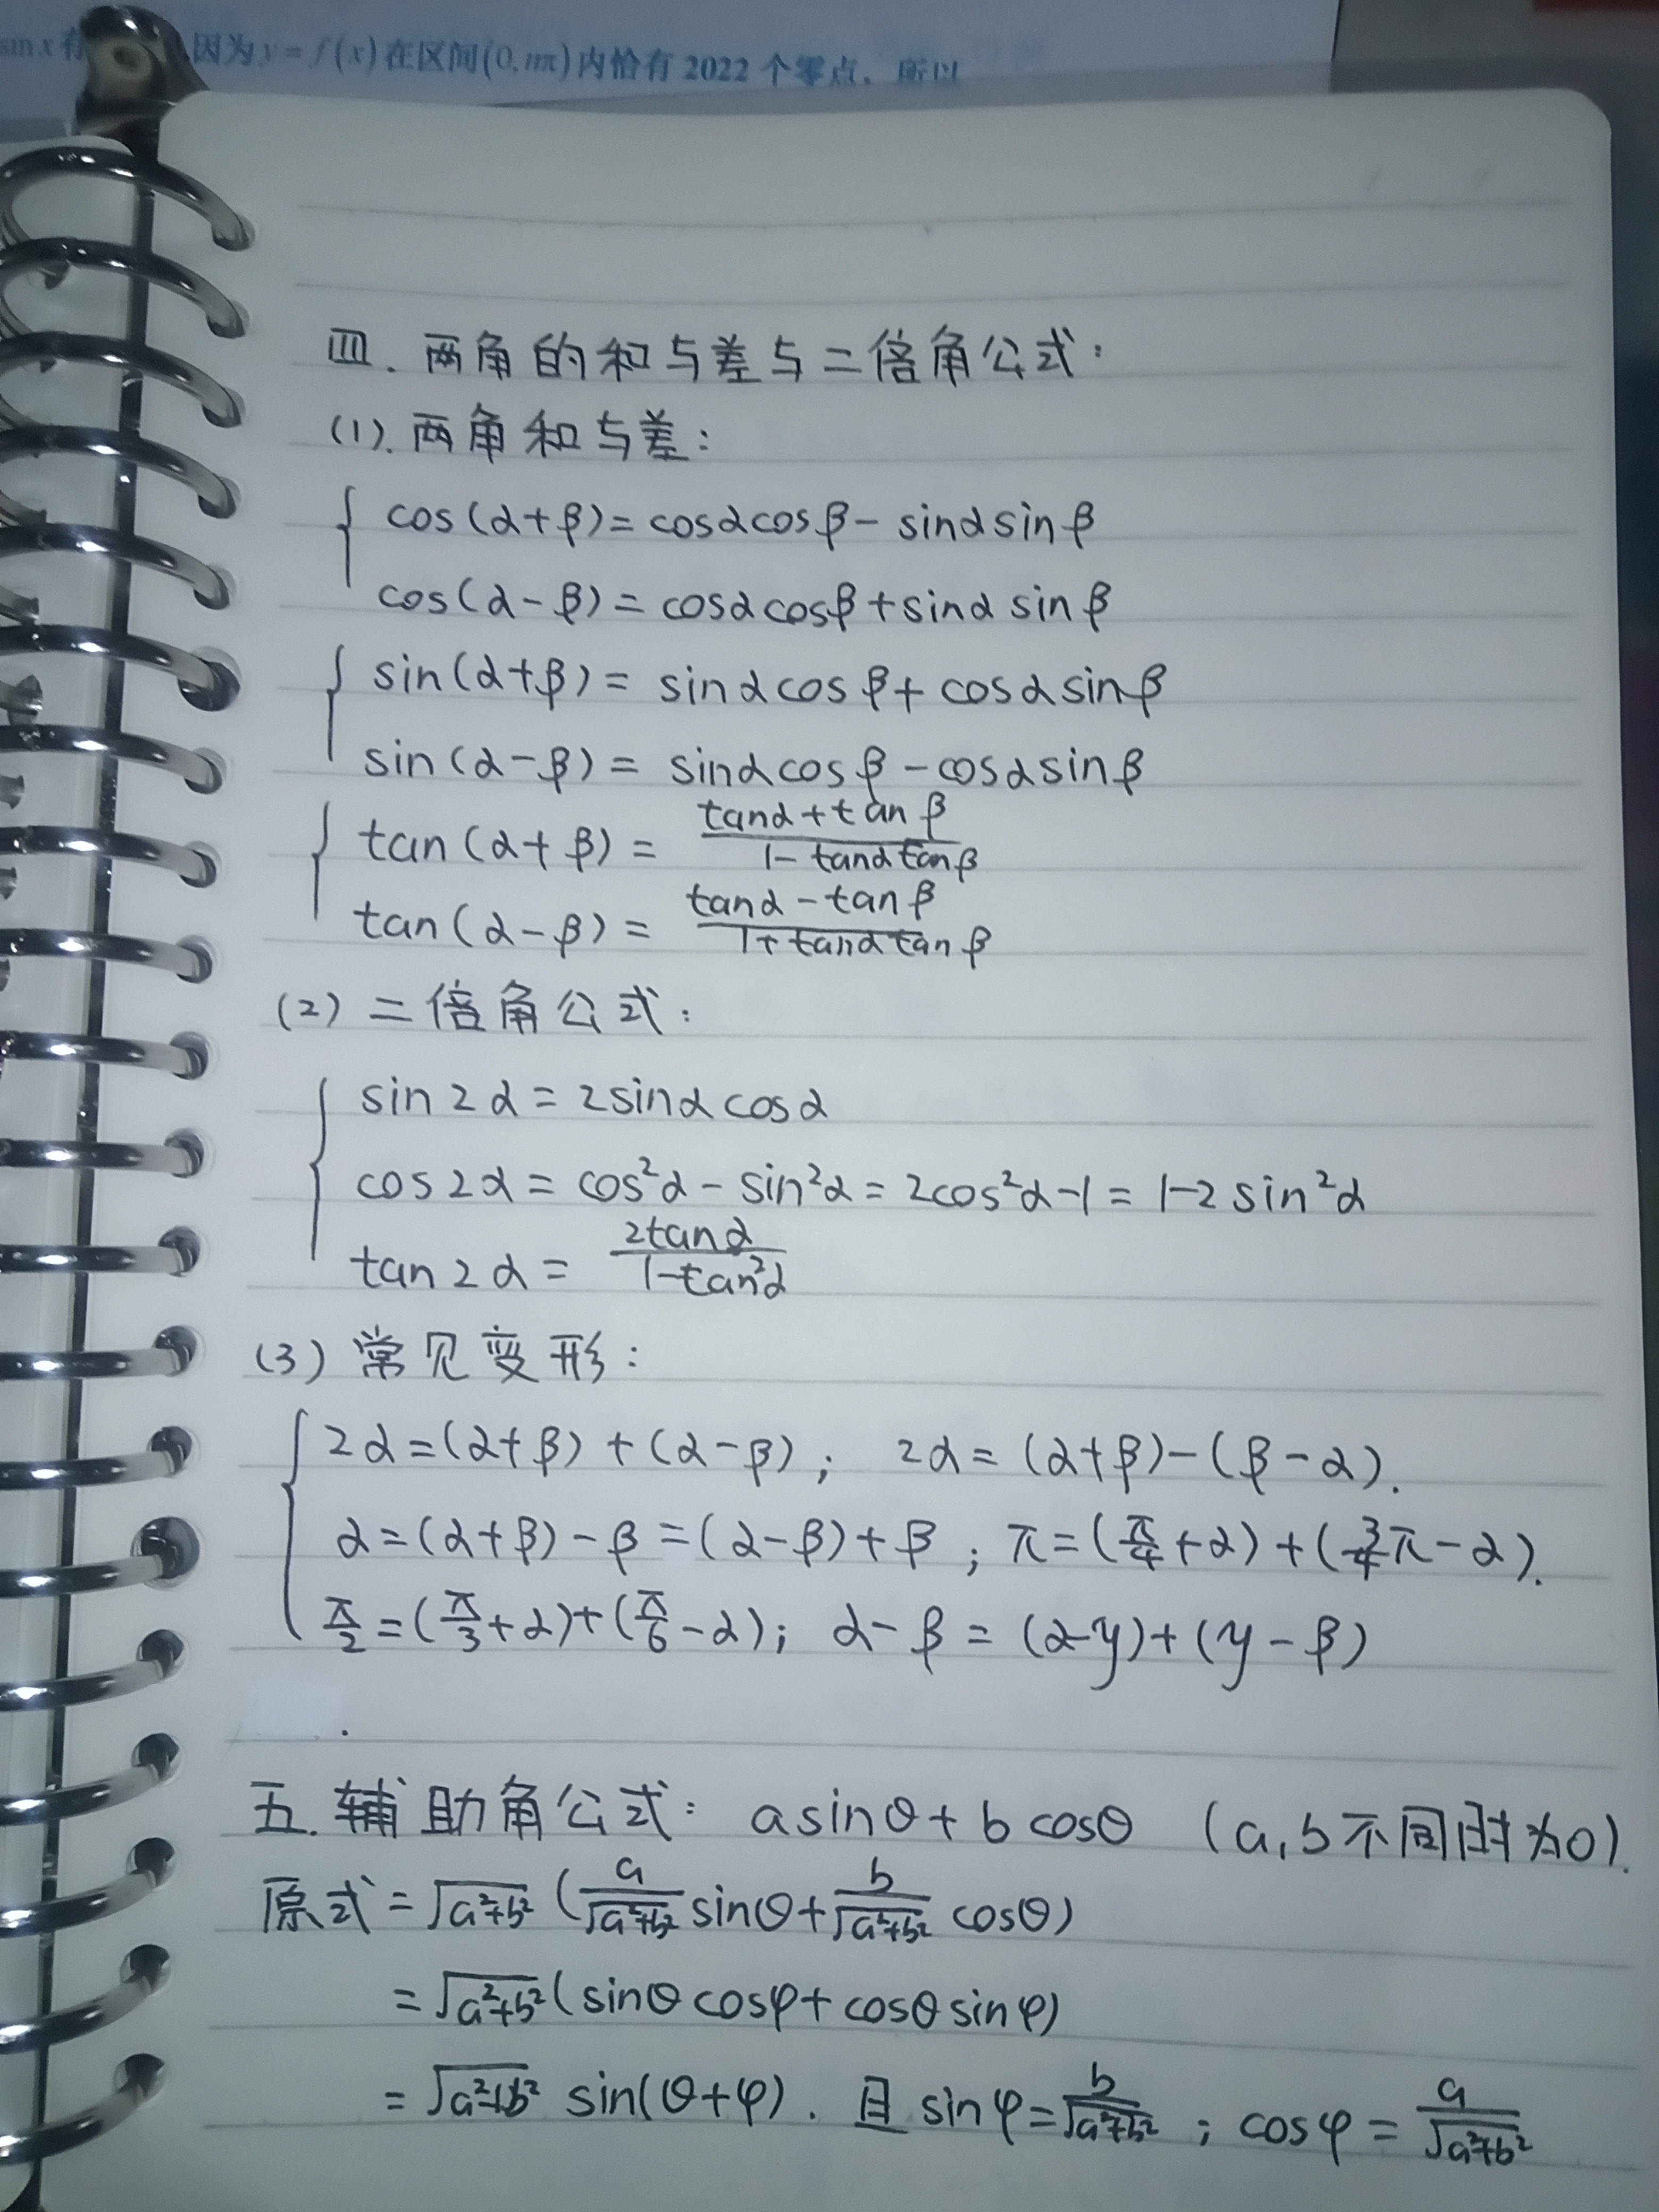 sin x 有 因为 y = f(x) 在区间(0, nπ)内恰有 2022 个零点, 所以
四. 两角的和与差与二倍角公式:
(1). 两角和与差:
cos(α+β)=cosαcosβ- sinαsinβ
cos(α-β)=cosαcosβ+sinαsinβ
sin(α+β)= sinαcosβ+cosαsinβ
sin(α-β)= sinαcosβ-cosαsinβ
tan(α+β)= \frac{tanα+tanβ}{1-tanαtanβ}
tan(α-β)= \frac{tanα-tanβ}{1+tanαtanβ}
(2) 二倍角公式:
sin2α=2sinαcosα
cos2α=cos²α-sin²α=2cos²α-1=1-2sin²α
tan2α= \frac{2tanα}{1-tan²α}
(3) 常见变形:
2α=(α+β)+(α-β); 2α=(α+β)-(β-α).
α=(α+β)-β=(α-β)+β; π=(\frac{π}{4}+α)+(\frac{3}{4}π-α).
\frac{π}{2}=(\frac{π}{3}+α)+(\frac{π}{6}-α); α-β=(α-y)+(y-β)
五. 辅助角公式: asinθ+bcosθ (a,b不同时为0).
原式=\sqrt{a²+b²}(\frac{a}{\sqrt{a²+b²}}sinθ+\frac{b}{\sqrt{a²+b²}}cosθ)
=\sqrt{a²+b²}(sinθcosφ+cosθsinφ)
=\sqrt{a²+b²} sin(θ+φ). 且 sinφ=\frac{b}{\sqrt{a²+b²}}; cosφ=\frac{a}{\sqrt{a²+b²}}